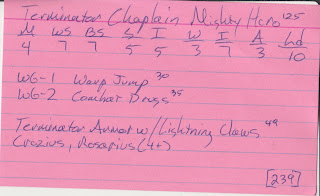 Terminator Chaplain Mighty Hero 125
M WS BS S I W I A Ld
4 7 7 5 5 3 7 3 10
WG-1 Warp Jump 30
WG-2 Combat Drugs 35
Terminator Armor w/Lightning Claws 49
Crozius, Rosarius (4+)
[239]